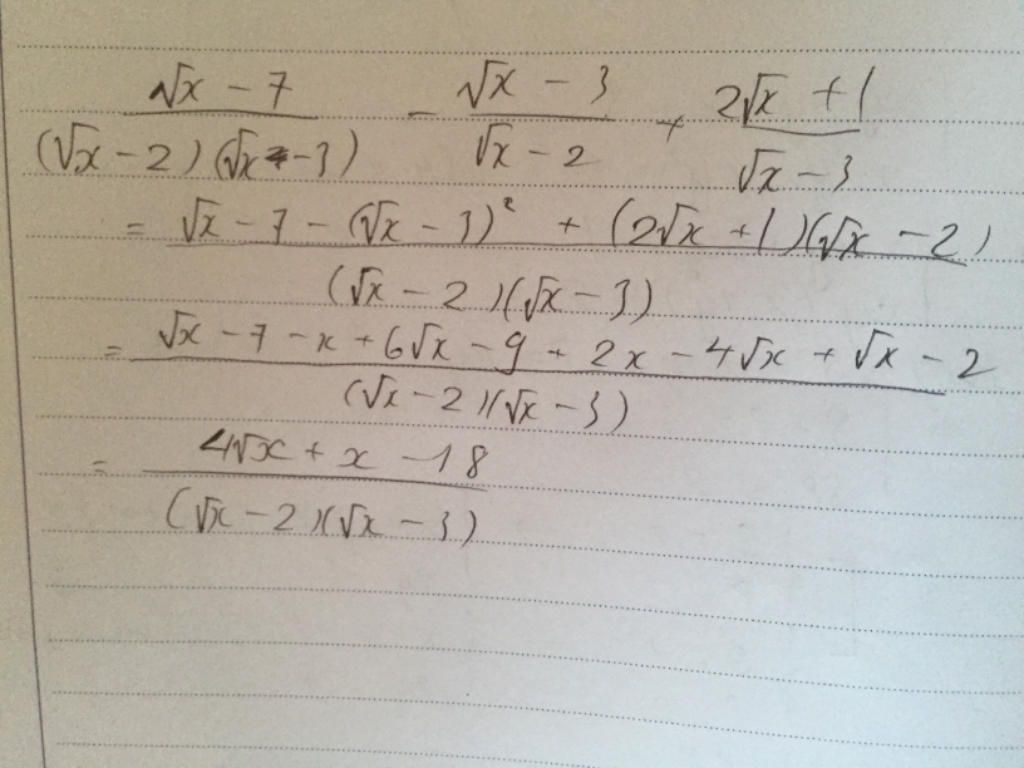 (√x - 7)/((√x - 2)(√x - 3)) - (√x - 3)/(√x - 2) + (2√x + 1)/(√x - 3)
= (√x - 7 - (√x - 3)² + (2√x + 1)(√x - 2))/((√x - 2)(√x - 3))
= (√x - 7 - x + 6√x - 9 + 2x - 4√x + √x - 2)/((√x - 2)(√x - 3))
= (4√x + x - 18)/((√x - 2)(√x - 3))